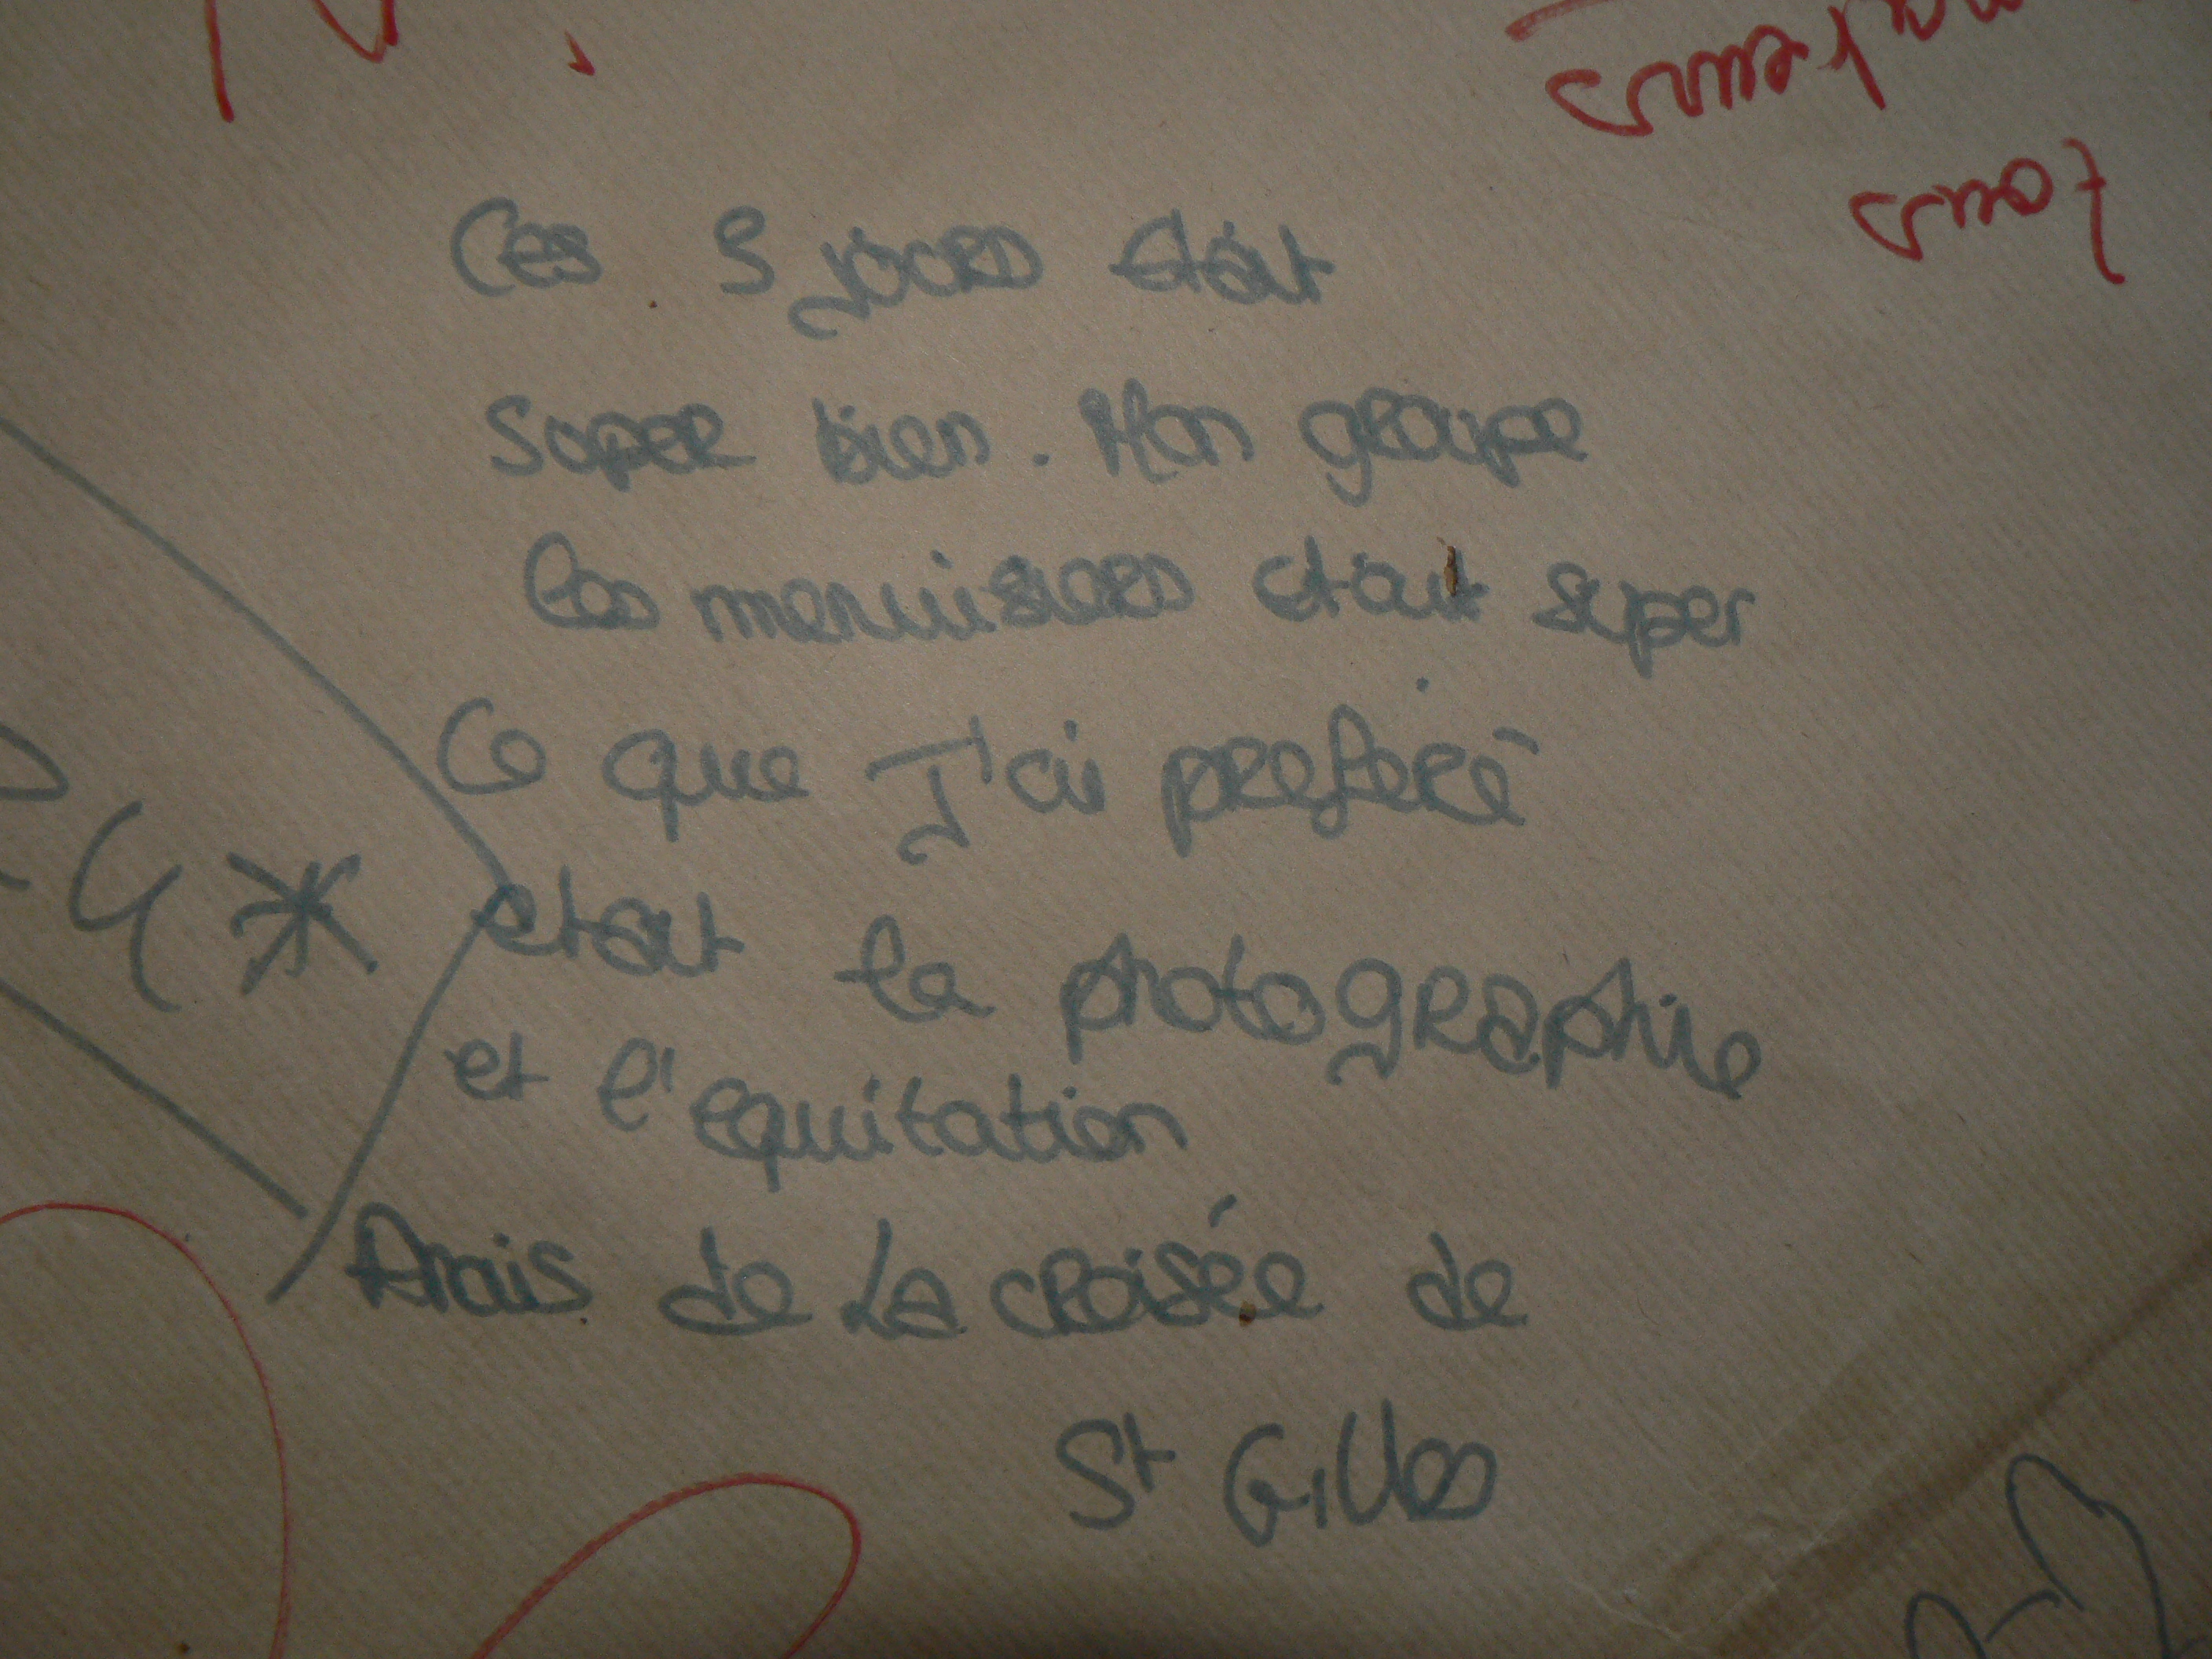 Ces 3 jours était
super bien. Mon groupe
les menuisiers était super
Ce que J'ai preferé
etait la photographie
et l'equitation
Anais de La croisée de
St Gilles
tous